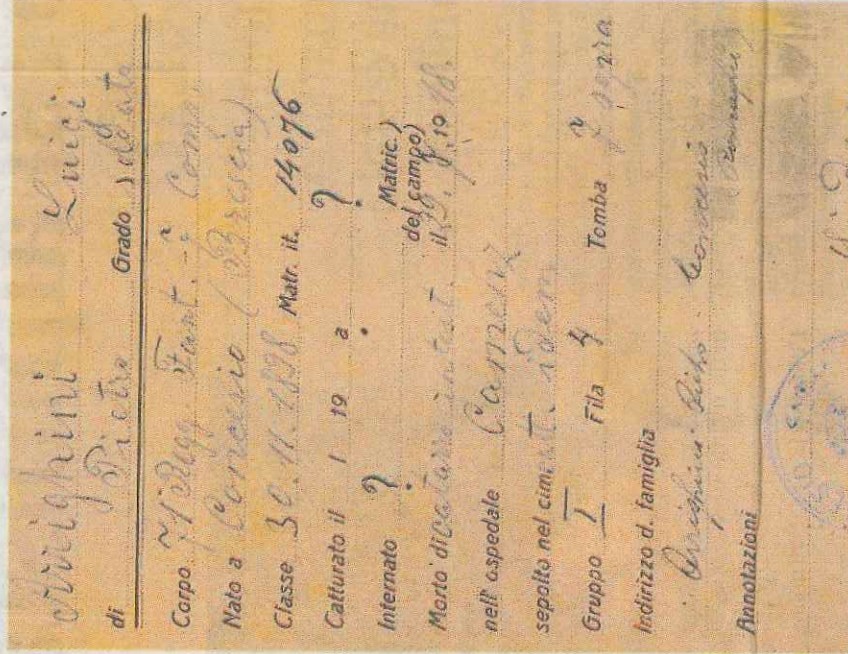 Arrighini Luigi
di Pietro Grado soldato
Corpo 71 Regg. Fant. Comp.
Nato a Concesio (Brescia)
Classe 30.11.1898 Matr. it. 14076
Catturato il / 19 a ?
Internato ? Matric.) del campo)
Morto di Catarro intest. il 19 18.
nell'ospedale Camenz
sepolto nel cimit. idem
Gruppo I Fila 4 Tomba 7
Indirizzo d. famiglia
Arrighini Pietro Concesio
Annotazioni